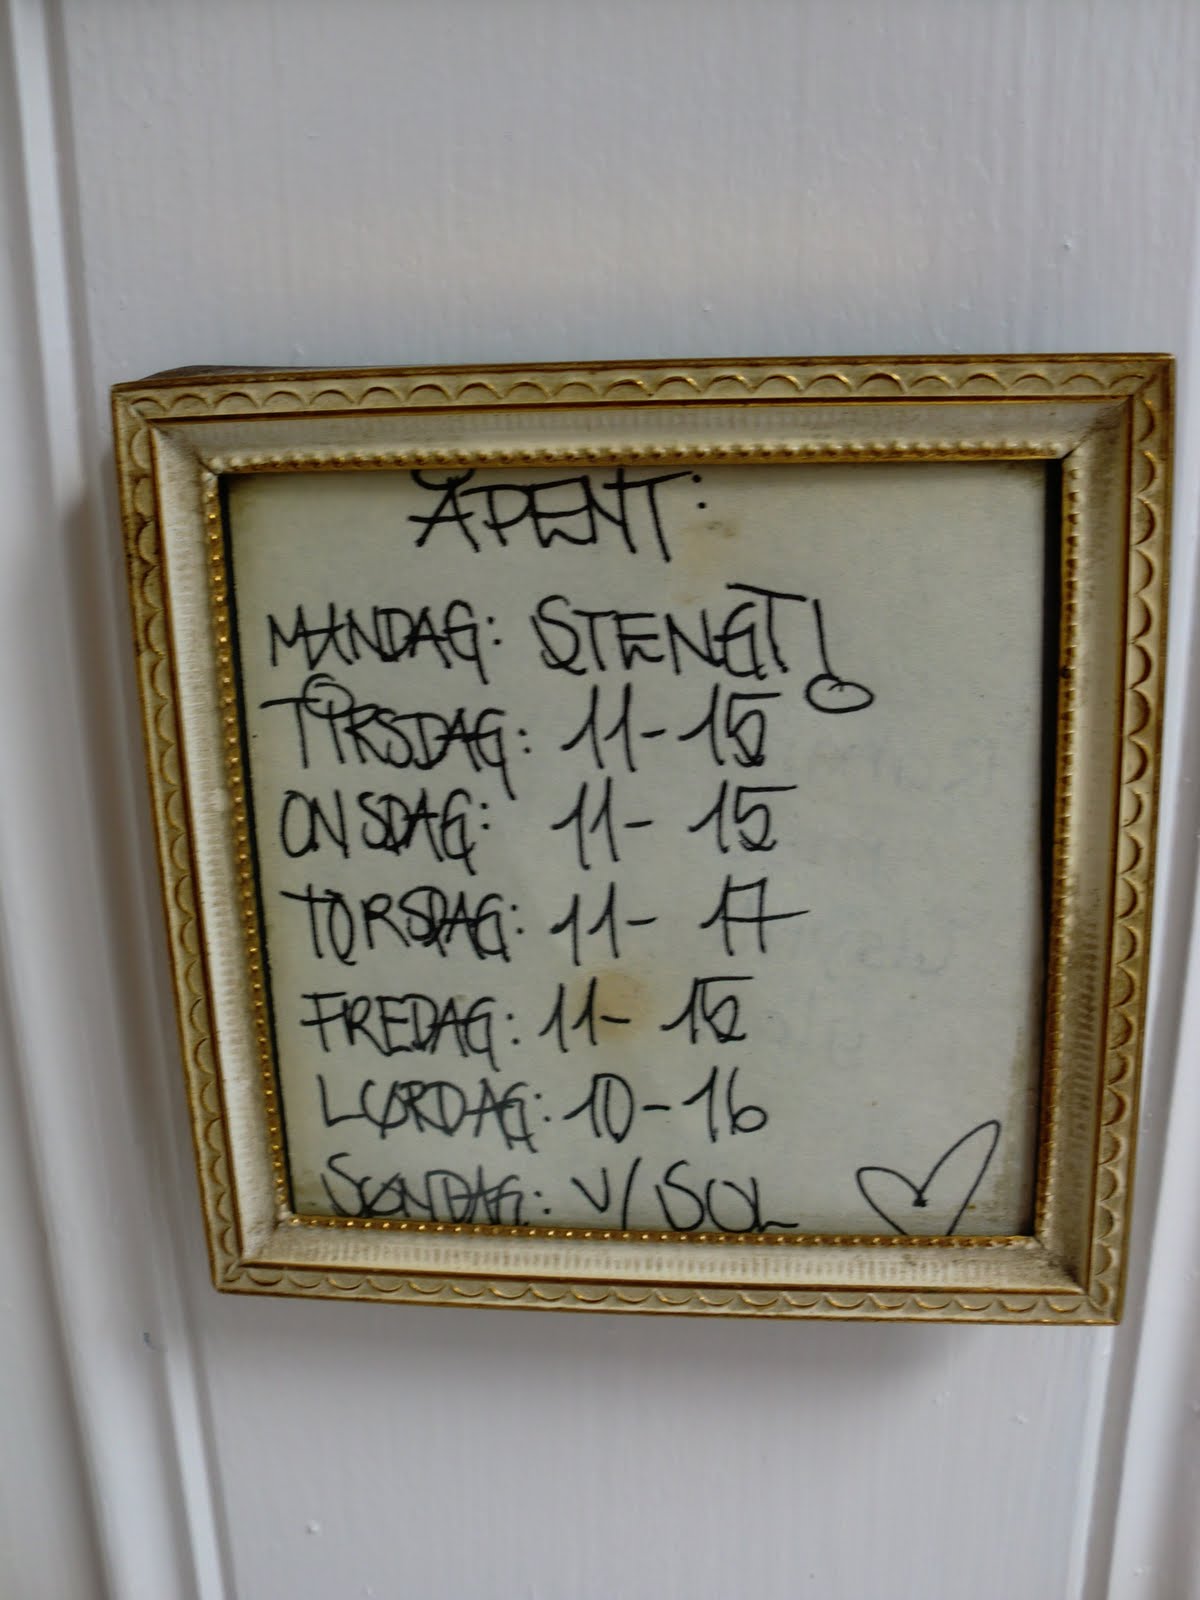 ÅPENT:
MANDAG: STENGT!
TIRSDAG: 11-15
ONSDAG: 11-15
TORSDAG: 11-17
FREDAG: 11-15
LØRDAG: 10-16
SØNDAG: V/SOL